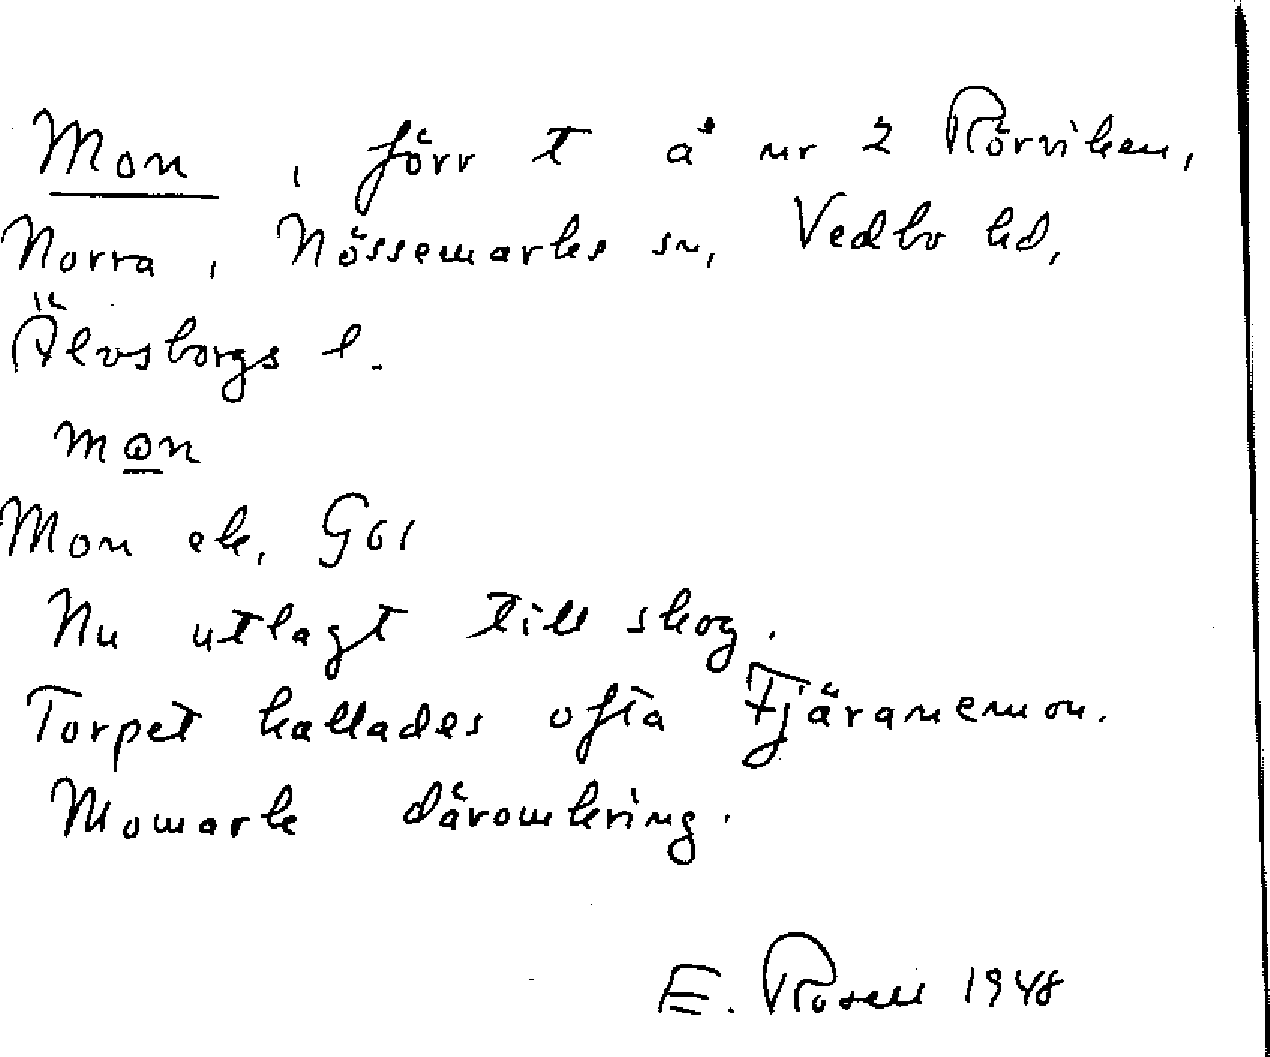 Mon, förr t å nr 2 Rörviken,
Norra, Nössemarks sn, Vedbo hd,
Älvsborgs l.
mon
Mon ek, GS1
Nu utlagt till skog.
Torpet kallades ofta Tjäranemon.
Momark däromkring.
E. Rosell 1948